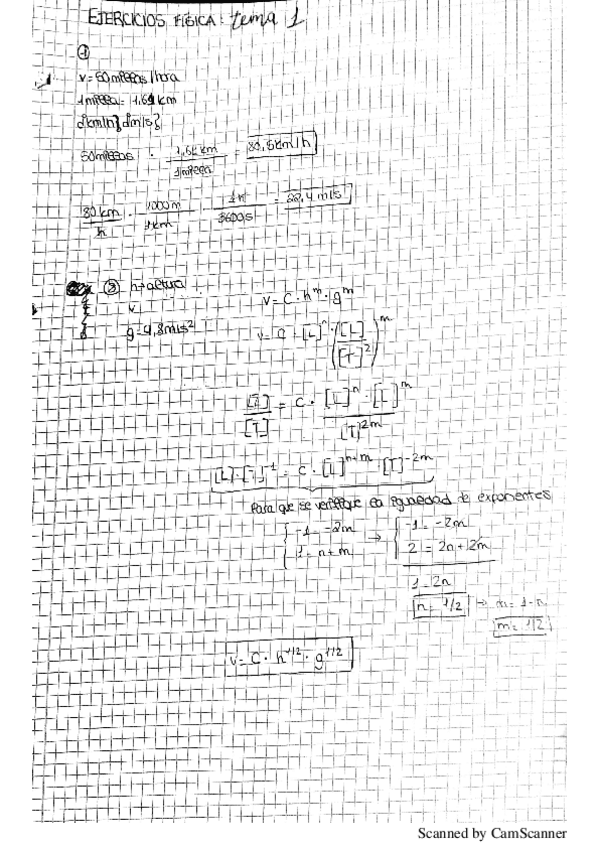 EJERCICIOS FÍSICA: tema 1
①
v = 50 millas/hora
1 milla = 1,61 km
¿km/h? ¿m/s?
50 millas · 1,61 km / 1 milla = 80,5 km/h
80 km / h · 1000 m / 1 km · 1 h / 3600 s = 22,4 m/s
② h → altura
v
g = 9,8 m/s²
v = C · h^n · g^m
v = C · [L]^n · ([L] / [T]²)^m
[L] / [T] = C · [L]^n · [L]^m / [T]^2m
[L] · [T]^-1 = C · [L]^n+m · [T]^-2m
Para que se verifique la igualdad de exponentes
{ -1 = -2m → { -1 = -2m
1 = n + m 2 = 2n + 2m
1 = 2n
n = 1/2 → m = 1 - n
m = 1/2
v = C · h^1/2 · g^1/2
Scanned by CamScanner